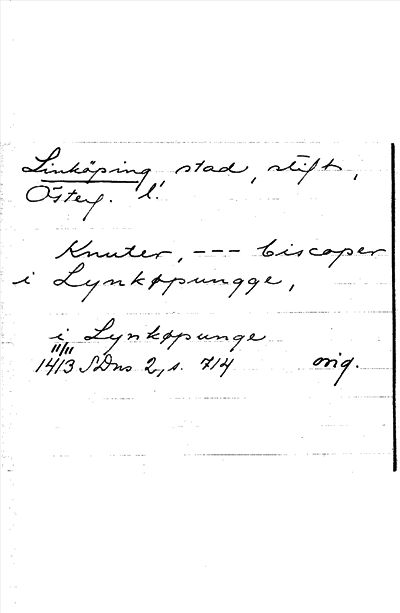 Linköping, stad, stift,
Österg. l.
Knuter, --- biscoper
i Lynkøpungge,
i Lynkøpunge
11/11
1413 SDns 2, s. 714 orig.